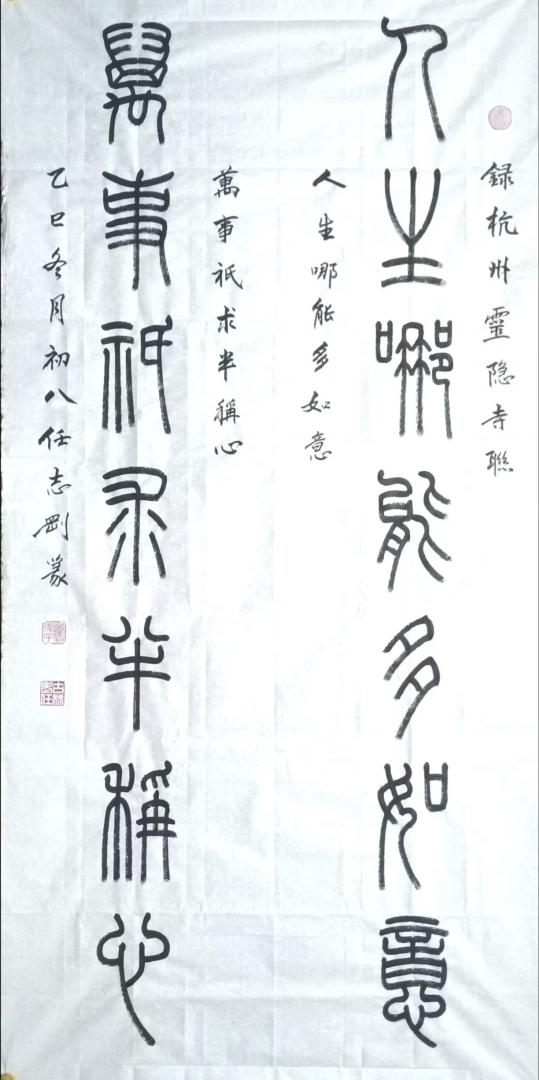 録杭州靈隐寺聯
人生哪能多如意
人生哪能多如意
萬事祇求半稱心
萬事祇求半稱心
乙巳冬月初八任志剛篆